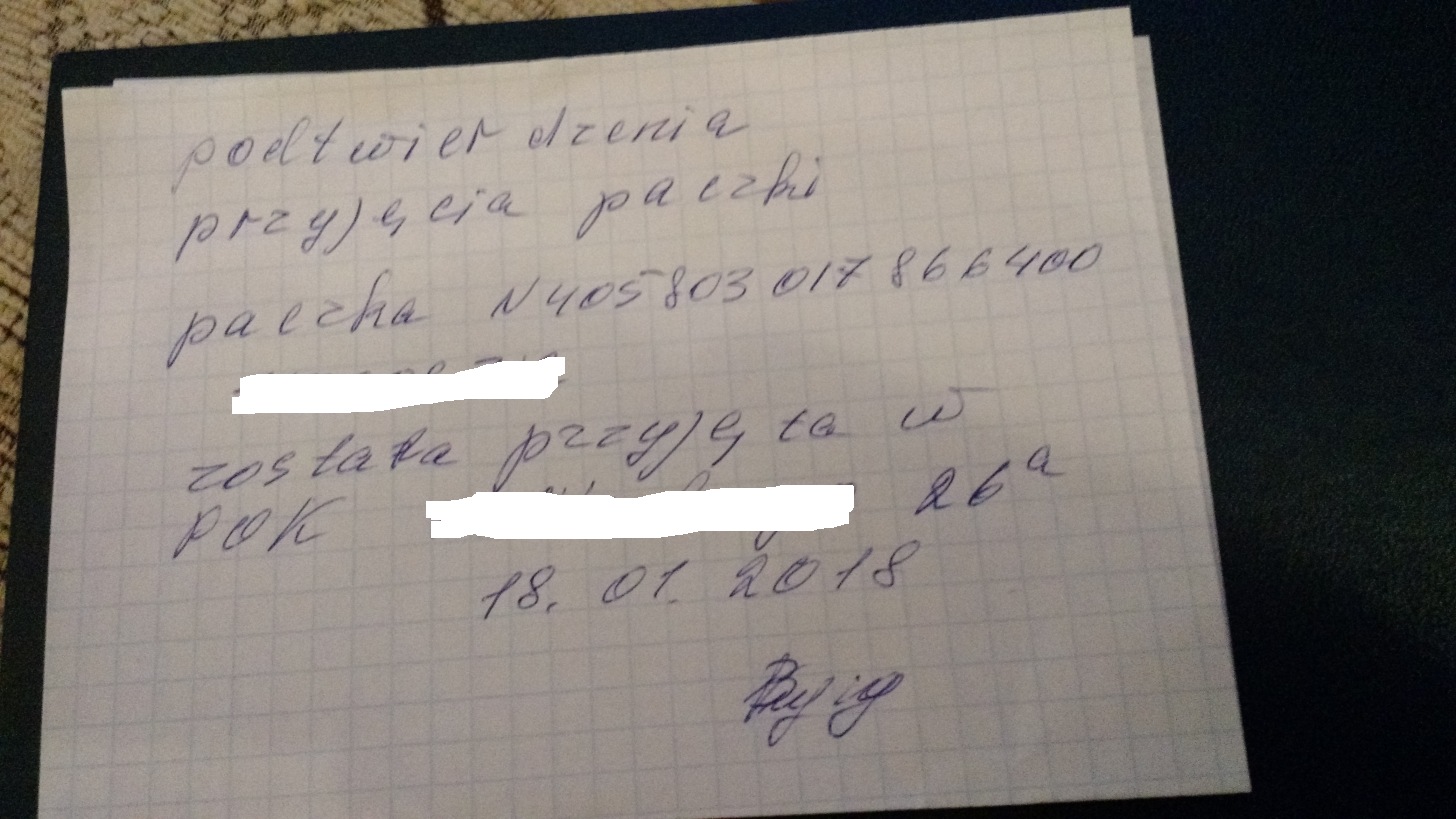 podtwierdzenia
przyjęcia paczki
paczka N405803017866400
zostata przyjęta w
POK 26a
18.01.2018